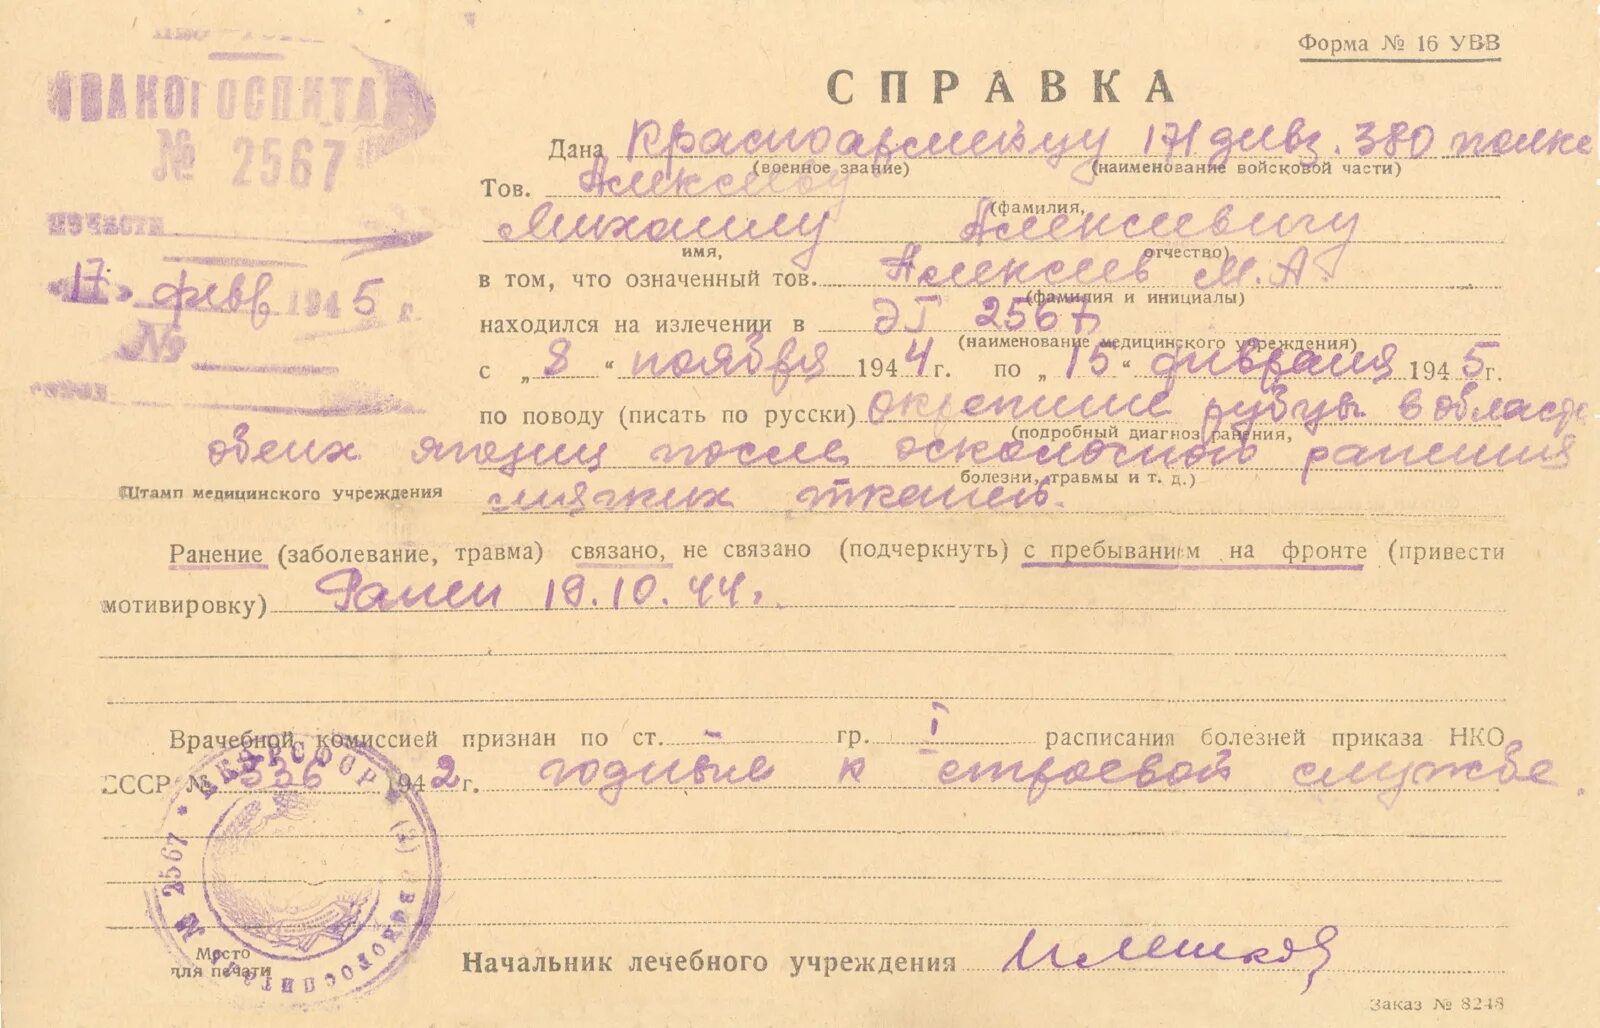 Форма № 16 УВВ
СПРАВКА
ЭВАКОГОСПИТАЛЬ
№ 2567
Дана Красноармейцу 171 дивз. 380 полка
(военное звание) (наименование войсковой части)
Тов. Алексееву
(фамилия,
Михаилу Алексеевичу
имя, отчество)
17 февр 1945 г.
№
в том, что означенный тов. Алексеев М. А.
(фамилия и инициалы)
находился на излечении в ЭГ 2567
(наименование медицинского учреждения)
с „8“ ноября 1944 г. по „15“ февраля 1945 г.
по поводу (писать по русски) окрепшие рубцы в области
(подробный диагноз ранения,
обеих ягодиц после осколочного ранения
болезни, травмы и т. д.)
Штамп медицинского учреждения
мягких тканей.
Ранение (заболевание, травма) связано, не связано (подчеркнуть) с пребыванием на фронте (привести
мотивировку) Ранен 19.10.44.
Врачебной комиссией признан по ст. - гр. I расписания болезней приказа НКО
СССР № 336 1942 г. годные к строевой службе.
№ 2567 * НКЗ РСФСР *
Место
для печати
Начальник лечебного учреждения
Заказ № 8248